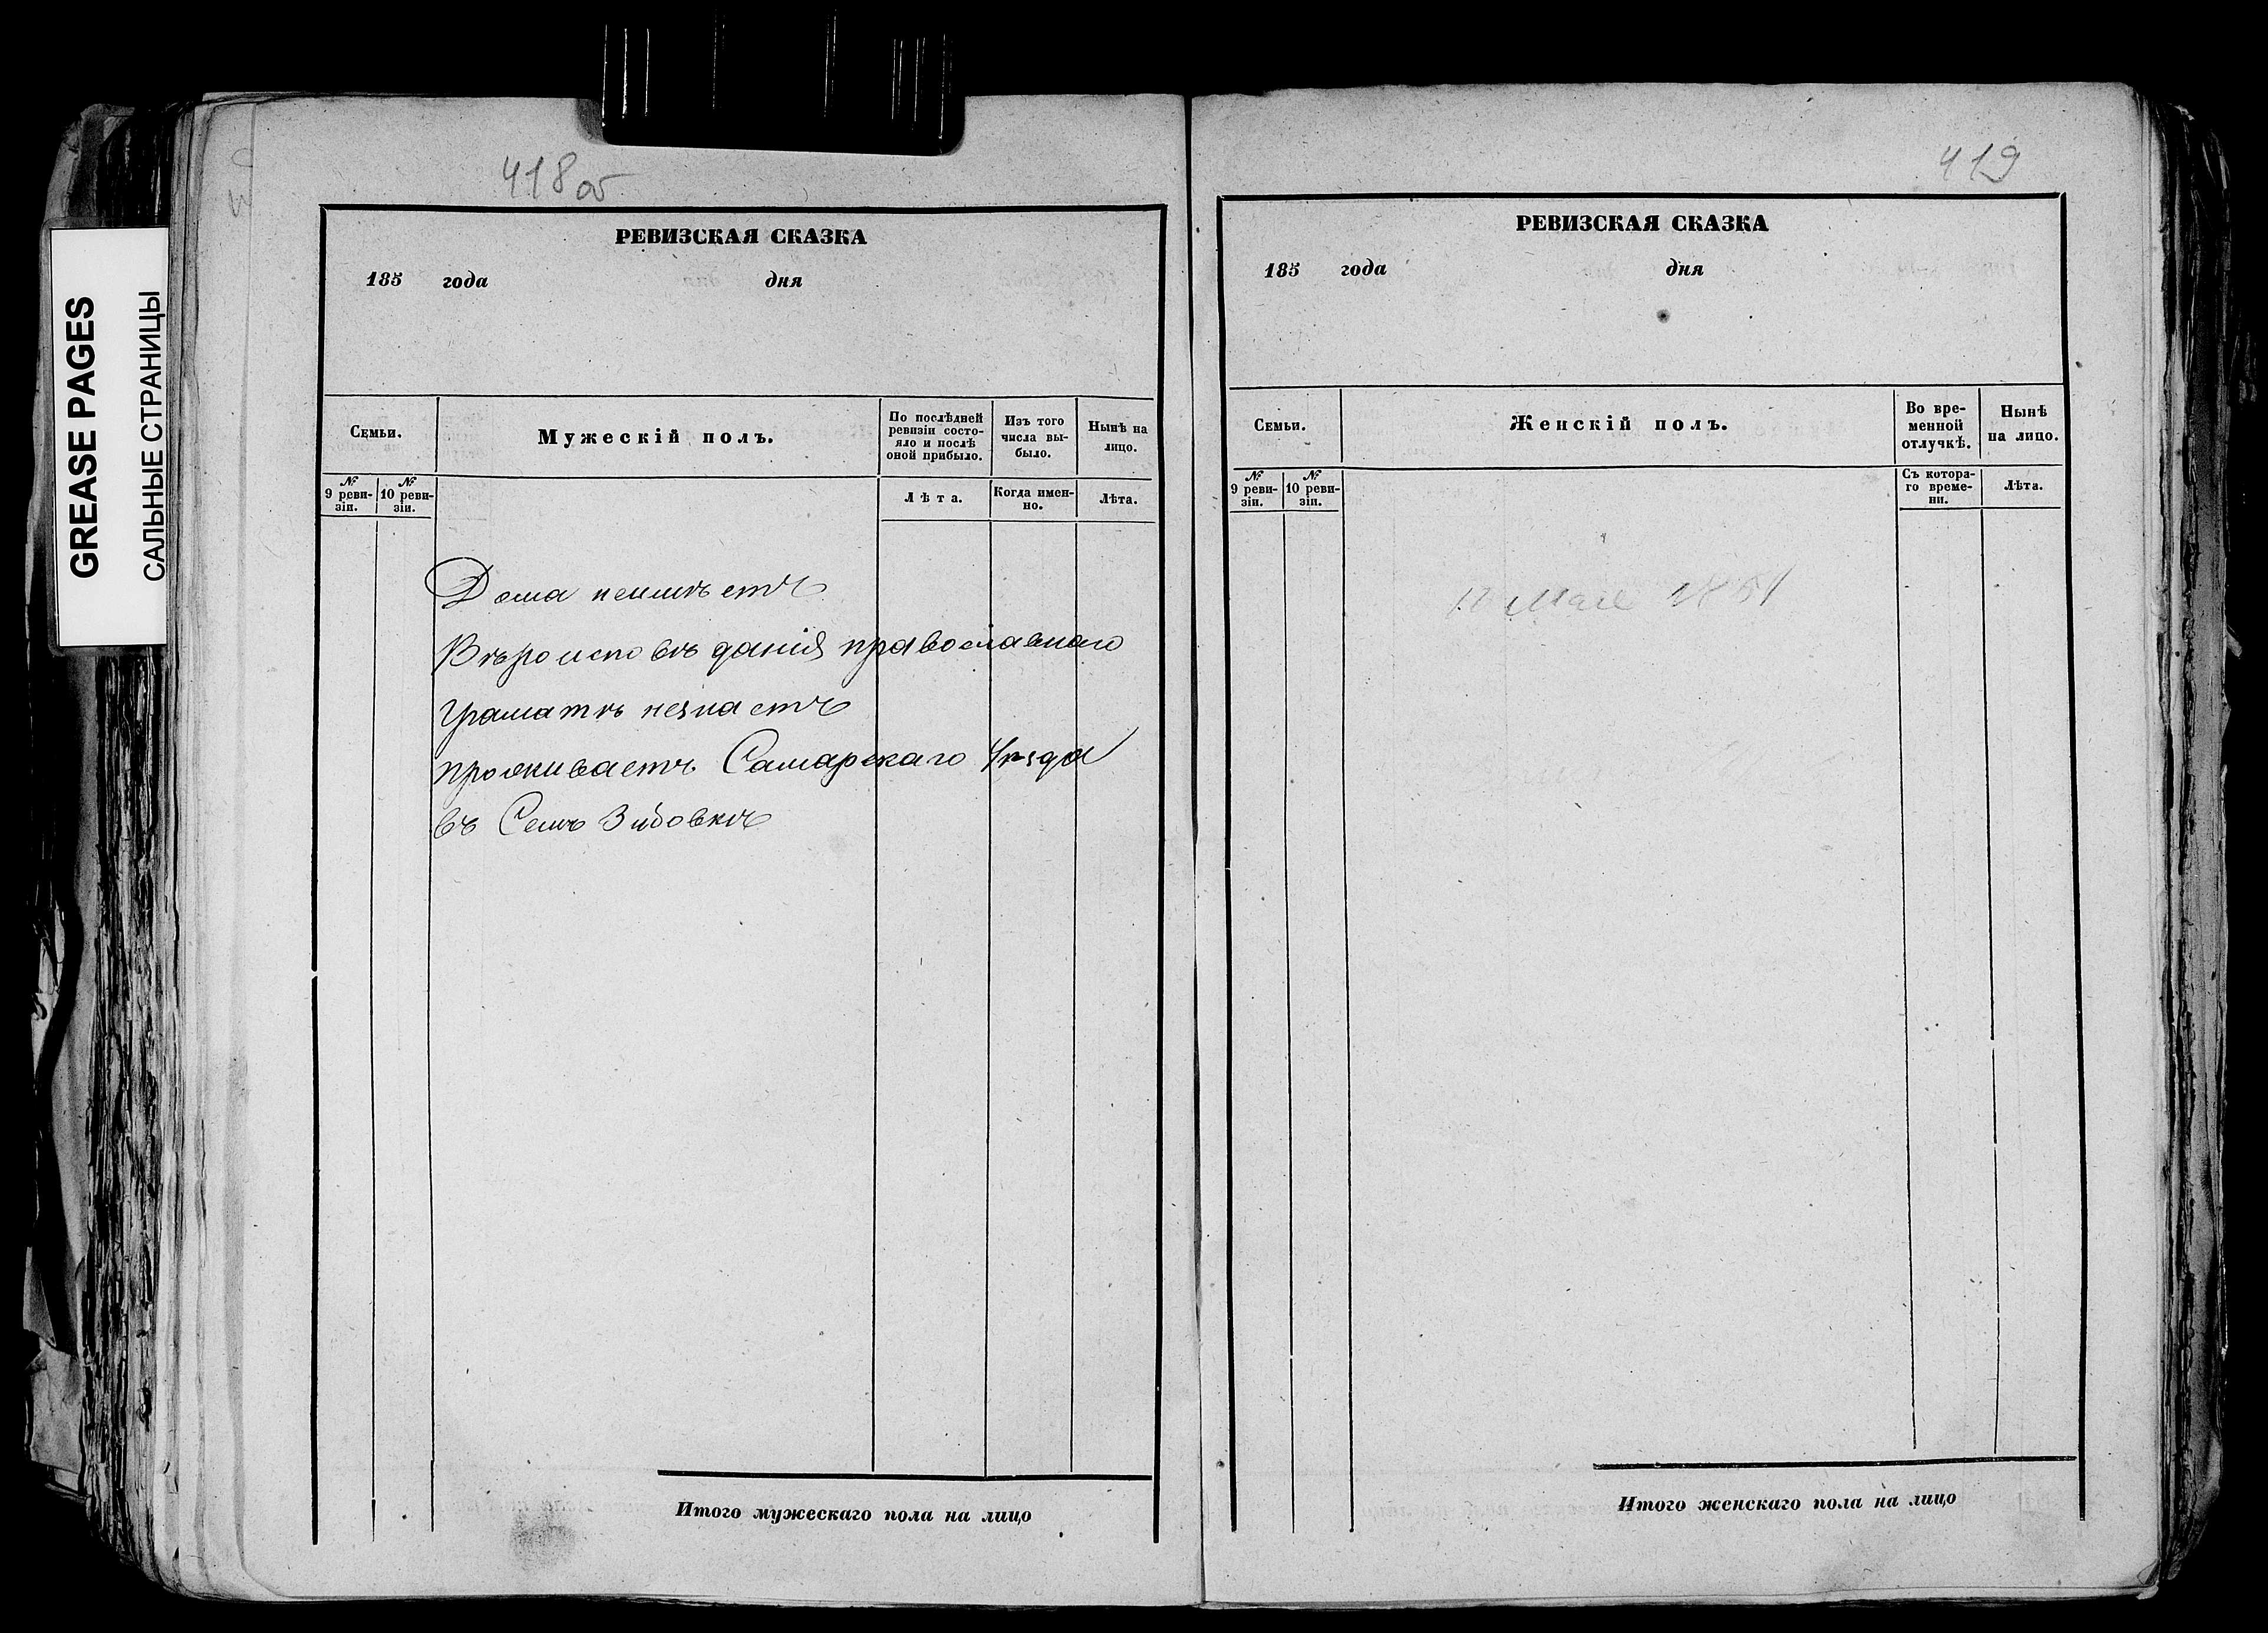 GREASE PAGES
САЛЬНЫЕ СТРАНИЦЫ
418 об
РЕВИЗСКАЯ СКАЗКА
185 года дня
Семьи.
Мужескій полъ.
По послѣдней ревизіи состо-
яло и послѣ
оной прибыло.
Изъ того
числа вы-
было.
Нынѣ на
лицо.
№ 9 реви-
зіи.
№ 10 реви-
зіи.
Лѣта.
Когда имен-
но.
Лѣта.
Дома неимѣетъ
Вѣроисповѣданія православнаго
Граматѣ незнаетъ
проживаетъ Самарскаго Уѣзда
въ Селѣ
Итого мужескаго пола на лицо
419
РЕВИЗСКАЯ СКАЗКА
185 года дня
Семьи.
Женскій полъ.
Во вре-
менной
отлучкѣ.
Нынѣ
на лицо.
№ 9 реви-
зіи.
№ 10 реви-
зіи.
Съ котора-
го време-
ни.
Лѣта.
Мая
Итого женскаго пола на лицо